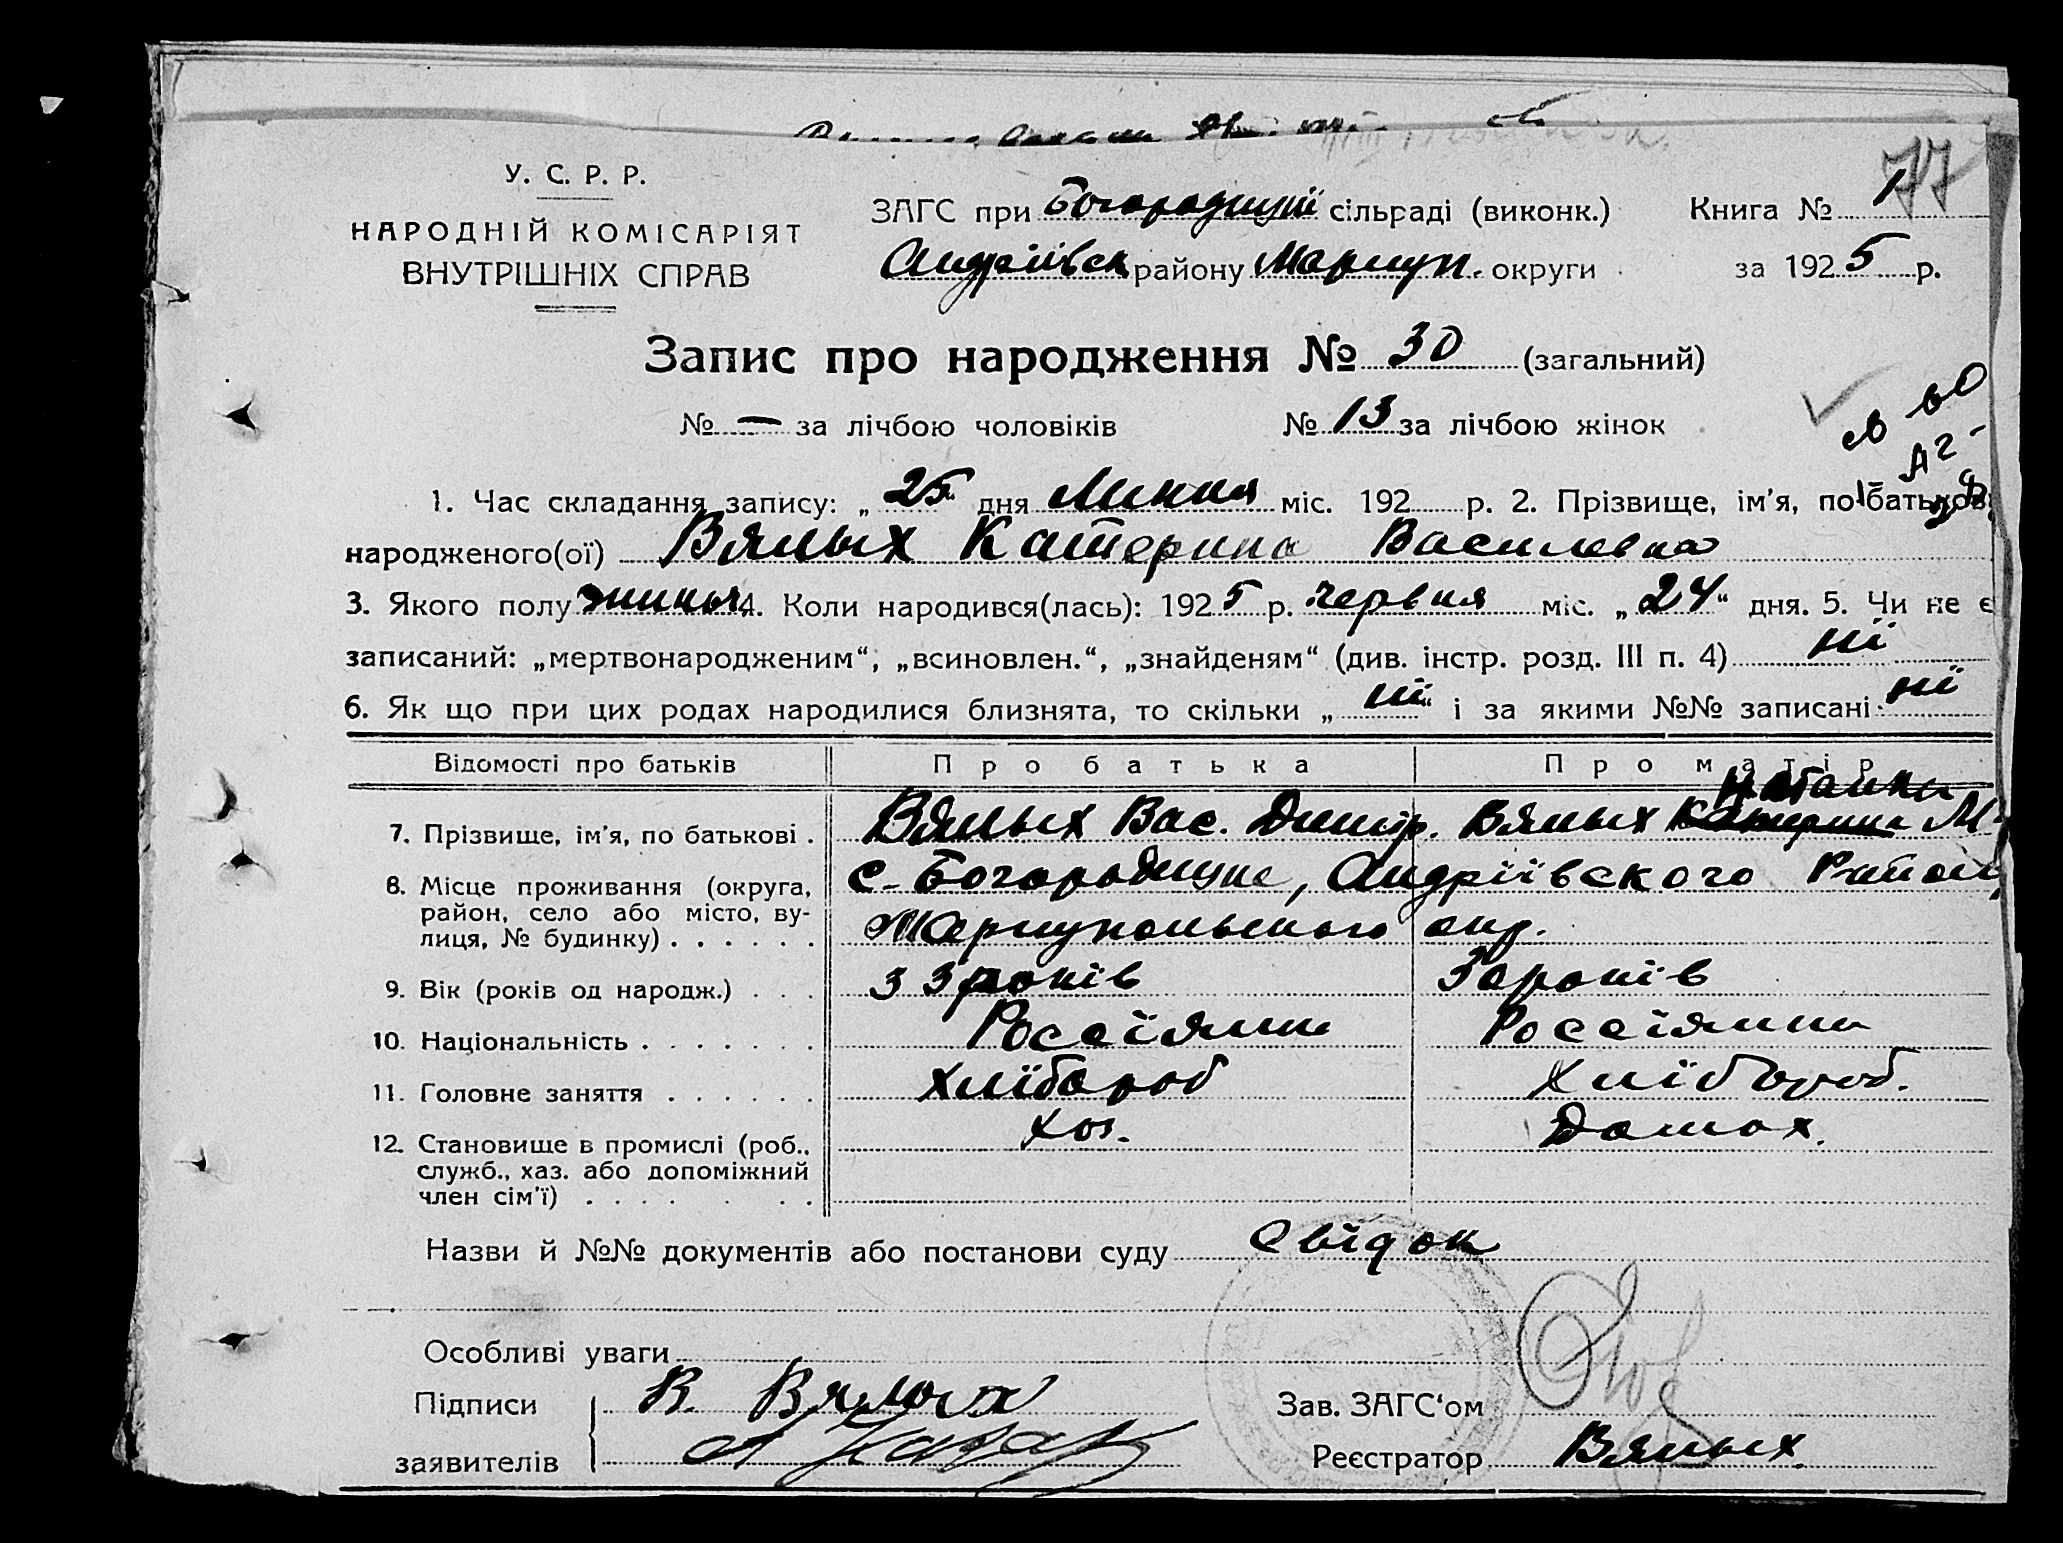 77
У. С. Р. Р.
НАРОДНІЙ КОМІСАРІЯТ
ВНУТРІШНІХ СПРАВ
ЗАГС при Богородицкій сільраді (виконк.)
Андріівск району Мариуп. округи
Книга № 1
за 1925 р.
Запис про народження № 30 (загальний)
№ — за лічбою чоловіків № 13 за лічбою жінок
1. Час складання запису: „ 25 " дня Липня міс. 192 р. 2. Прізвище, ім'я, по батьков
народженого(ої) Вялых Катерина Василевна
3. Якого полу жиноч. 4. Коли народився(лась): 1925 р. червня міс. „ 24 " дня. 5. Чи не є
записаний: „мертвонародженим", „всиновлен.", „знайденям" (див. інстр. розд. III п. 4) ні
6. Як що при цих родах народилися близнята, то скільки „ ні " і за якими №№ записані ні
Відомості про батьків Про батька Про матір
Наталка
7. Прізвище, ім'я, по батькові . Вялых Вас. Дмитр. Вялых Катерина М
8. Місце проживання (округа, район, село або місто, вулиця, № будинку) . . . . . . с. Богородицке, Андріівского Район
Мариупольского окр.
9. Вік (років од народж.) . . . 33 років 30 років
10. Національність . . . . . . . Россіянин Россіянка
11. Головне заняття . . . . . . Хлібороб Хлібороб.
12. Становище в промислі (роб., служб., хаз. або допоміжний член сім'ї) . . . . . . Хоз. Домох.
Назви й №№ документів або постанови суду Свідок
Особливі уваги
Підписи В. Вялых
заявителів
Зав. ЗАГС'ом
Реєстратор Вялых